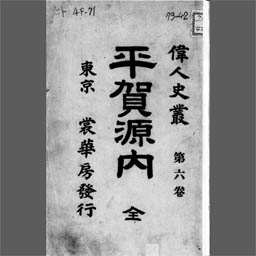 4F-71
73-42
偉人史叢
第六卷
平賀源內
全
東京 裳華房發行